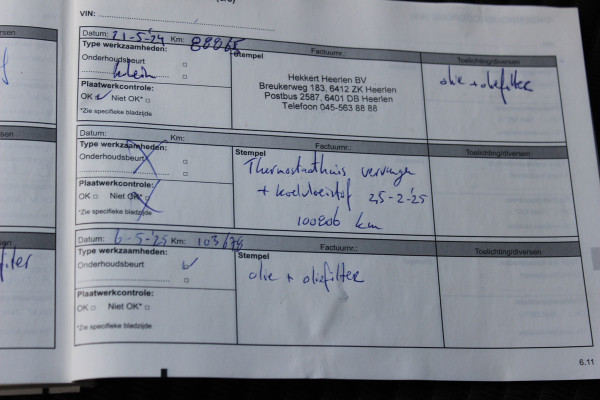 VIN:
Datum: 21-5-'24 Km: 88865 Factuurnr.: Toelichting/diversen
Type werkzaamheden: Stempel
Onderhoudsbeurt
klein
Plaatwerkcontrole:
OK Niet OK*
*Zie specifieke bladzijde
Hekkert Heerlen BV
Breukerweg 183, 6412 ZK Heerlen
Postbus 2587, 6401 DB Heerlen
Telefoon 045-563 88 88
olie + oliefilter
Datum: Km: Factuurnr.: Toelichting/diversen
Type werkzaamheden: Stempel
Onderhoudsbeurt
Plaatwerkcontrole:
OK Niet OK*
*Zie specifieke bladzijde
Thermostaathuis vervangen
+ koelvloeistof 25-2-'25
100806 km
Datum: 6-5-'25 Km: 103678 Factuurnr.: Toelichting/diversen
Type werkzaamheden: Stempel
Onderhoudsbeurt
Plaatwerkcontrole:
OK Niet OK*
*Zie specifieke bladzijde
olie + oliefilter
6.11